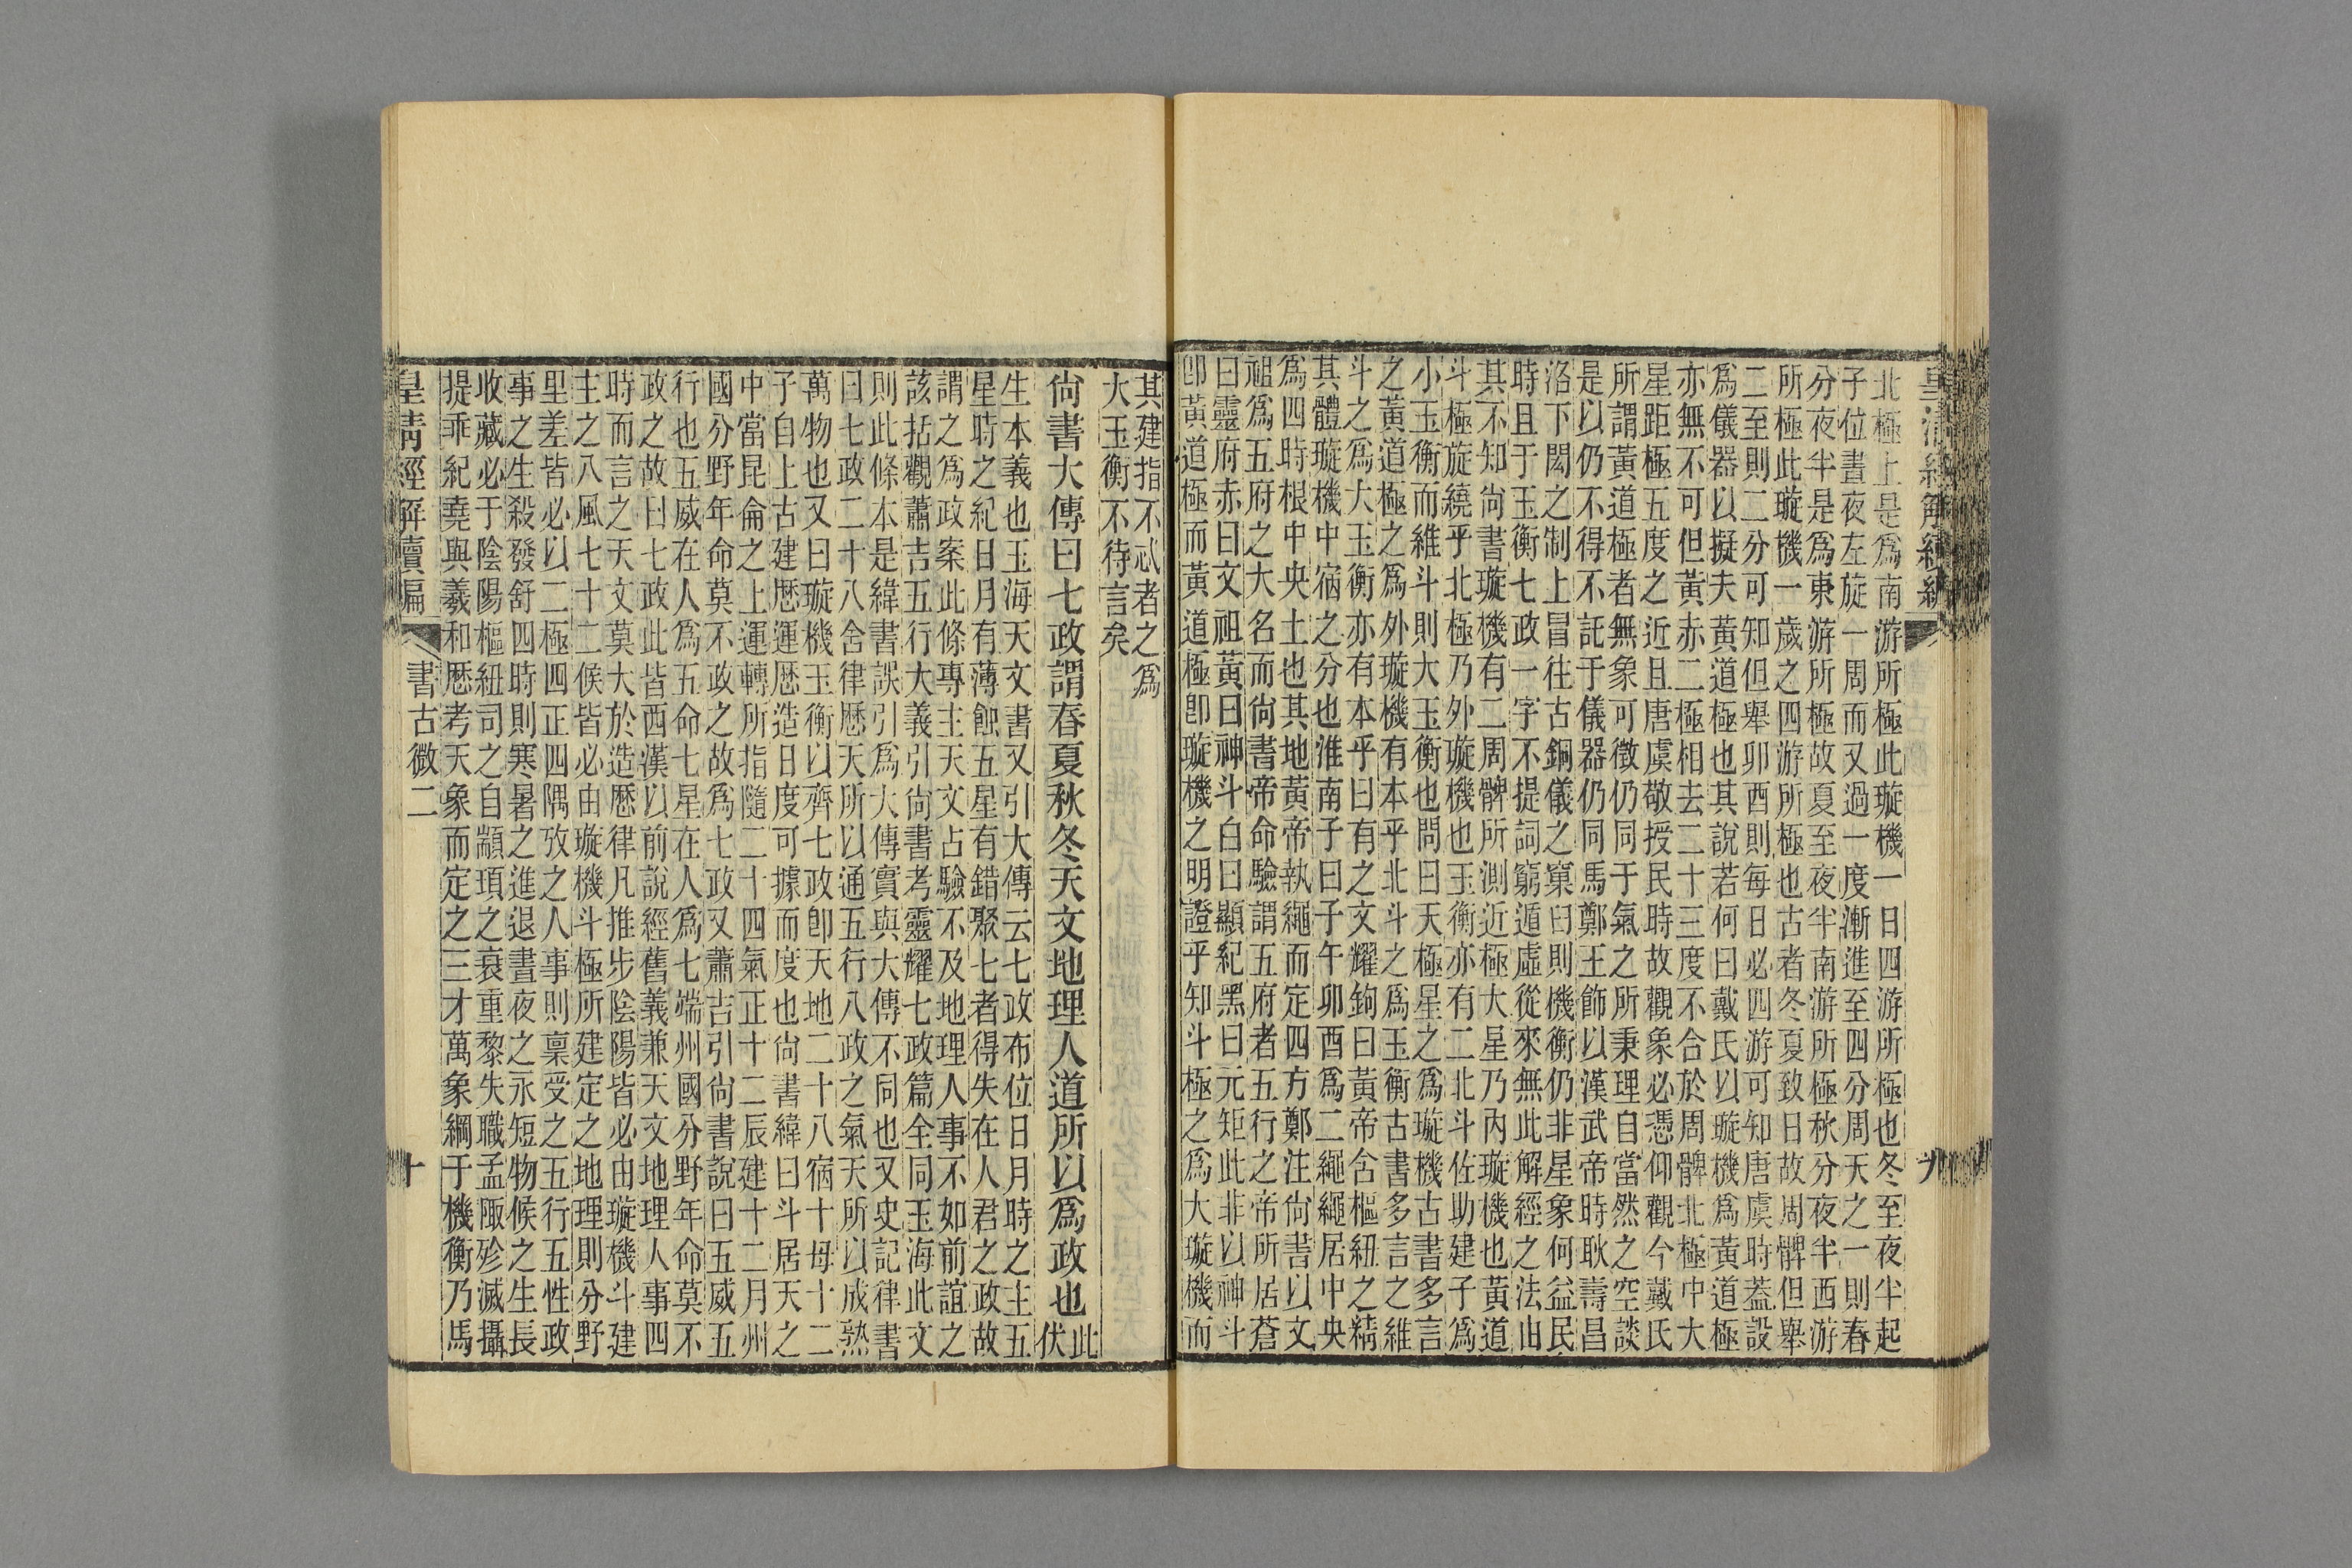 北極上是爲南游所極此璇機一日四游所極也冬至夜半起
子位晝夜左旋一周而又過一度漸進至四分周天之一則春
分夜半是爲東游所極故夏至夜半南游所極秋分夜半西游
所極此璇機一歲之四游所極也古者冬夏致日故周髀但舉
二至則二分可知但舉卯酉則每日必四游可知唐虞時蓋設
爲儀器以擬夫黃道極也其說若何曰戴氏以璇機爲黃道極
亦無不可但黃赤二極相去二十三度不合於周髀北極中大
星距極五度之近且唐虞敬授民時故觀象必憑仰觀今戴氏
所謂黃道極者無象可徵仍同于氣之所秉理自當然之空談
是以仍不得不託于儀器仍同馬鄭王飾以漢武帝時耿壽昌
洛下閎之制上冒往古銅儀之窠臼則機衡仍非星象何益民
時且于玉衡七政一字不提詞窮遁虛從來無此解經之法由
其不知尙書璇機有二周髀所測近極大星乃內璇機也黃道
斗極旋繞乎北極乃外璇機也玉衡亦有二北斗佐助建子爲
小玉衡而維斗則大玉衡也問曰天極星之爲璇機古書多言
之黃道極之爲外璇機有本乎北斗之爲玉衡古書多言之維
斗之爲大玉衡亦有本乎曰有之文耀鉤曰黃帝含樞紐之精
其體璇機中宿之分也淮南子曰子午卯酉爲二繩繩居中央
爲四時根中央土也其地黃帝執繩而定四方鄭注尙書以文
祖爲五府之大名而尙書帝命驗謂五府者五行之帝所居蒼
曰靈府赤曰文祖黃曰神斗白曰顯紀黑曰元矩此非以神斗
卽黃道極而黃道極卽璇機之明證乎知斗極之爲大璇機而
其建指不忒者之爲
大玉衡不待言矣
尙書大傳曰七政謂春夏秋冬天文地理人道所以爲政也此伏
生本義也玉海天文書又引大傳云七政布位日月時之主五
星時之紀日月有薄蝕五星有錯聚七者得失在人君之政故
謂之爲政案此條專主天文占驗不及地理人事不如前誼之
該括觀蕭吉五行大義引尙書考靈耀七政篇全同玉海此文
則此條本是緯書誤引爲大傳實與大傳不同也又史記律書
曰七政二十八舍律歷天所以通五行八政之氣天所以成熟
萬物也又曰璇機玉衡以齊七政卽天地二十八宿十母十二
子自上古建歷運歷造日度可據而度也尙書緯曰斗居天之
中當昆侖之上運轉所指隨二十四氣正十二辰建十二月州
國分野年命莫不政之故爲七政又蕭吉引尙書說曰五威五
行也五威在人爲五命七星在人爲七端州國分野年命莫不
政之故曰七政此皆西漢以前說經舊義兼天文地理人事四
時而言之天文莫大於造歷律凡推步陰陽皆必由璇機斗建
主之八風七十二候皆必由璇機斗極所建定之地理則分野
里差皆必以二極四正四隅攷之人事則稟受之五行五性政
事之生殺發舒四時則寒暑之進退晝夜之永短物候之生長
收藏必于陰陽樞紐司之自顓頊之衰重黎失職孟陬殄滅攝
提乖紀堯與羲和歷考天象而定之三才萬象綱于機衡乃馬
皇淸經解續編 書古微二 十